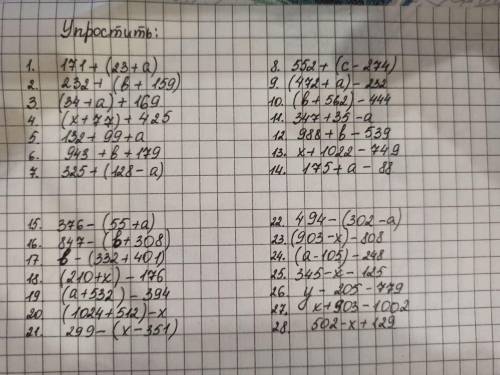 Упростить:
1. 171 + (23 + a)
2. 232 + (в + 159)
3. (34 + a) + 169
4. (x + 77) + 425
5. 132 + 99 + a
6. 943 + в + 179
7. 325 + (128 - a)
8. 552 + (c - 274)
9. (472 + a) - 232
10. (в + 562) - 444
11. 347 + 35 - a
12. 988 + в - 539
13. x + 1022 - 749
14. 175 + a - 88
15. 376 - (55 + a)
16. 847 - (в + 308)
17. в - (332 + 401)
18. (210 + x) - 176
19. (a + 532) - 394
20. (1024 + 512) - x
21. 299 - (x - 351)
22. 494 - (302 - a)
23. (903 - x) - 808
24. (a - 105) - 248
25. 345 - x - 125
26. y - 205 - 779
27. x + 903 - 1002
28. 502 - x + 129